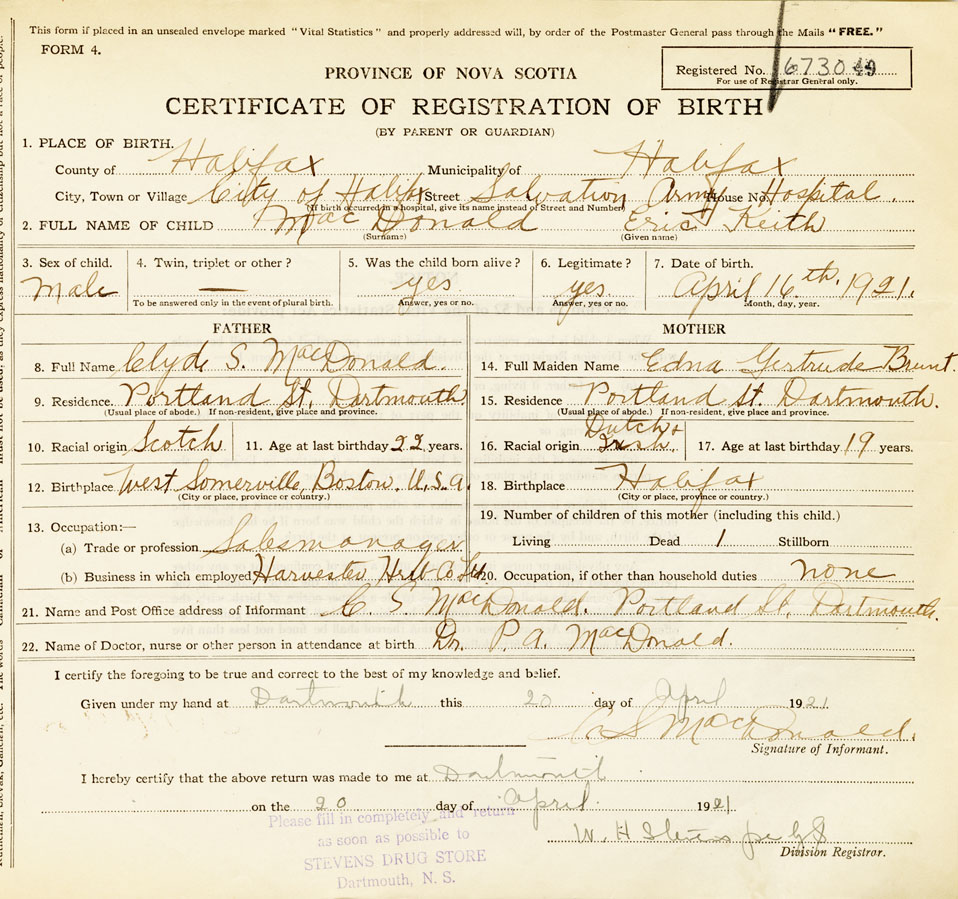 This form if placed in an unsealed envelope marked "Vital Statistics" and properly addressed will, by order of the Postmaster General pass through the Mails "FREE."
FORM 4.
Registered No. 67304
For use of Registrar General only.
PROVINCE OF NOVA SCOTIA
CERTIFICATE OF REGISTRATION OF BIRTH
(BY PARENT OR GUARDIAN)
1. PLACE OF BIRTH.
County of Halifax Municipality of Halifax
City, Town or Village City of Halifx Street Salvation Army House No. Hospital.
(If birth occurred in a hospital, give its name instead of Street and Number)
2. FULL NAME OF CHILD MacDonald Eric Keith
(Surname) (Given name)
3. Sex of child. 4. Twin, triplet or other? 5. Was the child born alive? 6. Legitimate? 7. Date of birth.
Male — yes yes. April 16th. 1921.
To be answered only in the event of plural birth. Answer, yes or no. Answer, yes or no. Month, day, year.
FATHER
8. Full Name Clyde S. MacDonald.
9. Residence. Portland St. Dartmouth
(Usual place of abode.) If non-resident, give place and province.
10. Racial origin Scotch 11. Age at last birthday 22 years.
12. Birthplace West Somerville, Boston. U.S.A.
(City or place, province or country.)
13. Occupation:—
(a) Trade or profession Salesmanager
(b) Business in which employed Harvester Co Ltd.
MOTHER
14. Full Maiden Name Edna Gertrude Brunt.
15. Residence Portland St. Dartmouth.
(Usual place of abode.) If non-resident, give place and province.
16. Racial origin Dutch & Irish. 17. Age at last birthday 19 years.
18. Birthplace Halifax
(City or place, province or country.)
19. Number of children of this mother (including this child.)
Living Dead 1 Stillborn
20. Occupation, if other than household duties none
21. Name and Post Office address of Informant C. S. MacDonald. Portland St. Dartmouth.
22. Name of Doctor, nurse or other person in attendance at birth Dr. P. A. MacDonald.
I certify the foregoing to be true and correct to the best of my knowledge and belief.
Given under my hand at Dartmouth this 20 day of April 1921
C S MacDonald.
Signature of Informant.
I hereby certify that the above return was made to me at Dartmouth
on the 20 day of April. 1921.
W. H Stevens
Division Registrar.
Please fill in completely and return
as soon as possible to
STEVENS DRUG STORE
Dartmouth, N. S.